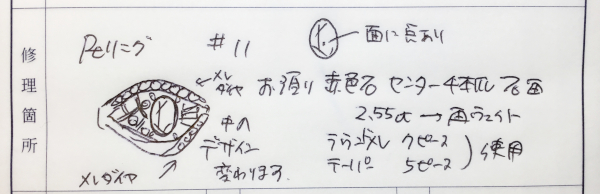 修理箇所
Peリング #11
面に㐧あり
メレダイヤ
お預り 赤色石 センター 4本爪 石西
2.55ct → 再ウェイト
中の
デザイン
変わります.
ラウンドメレ 7ピース
テーパー 5ピース
使用
メレダイヤ